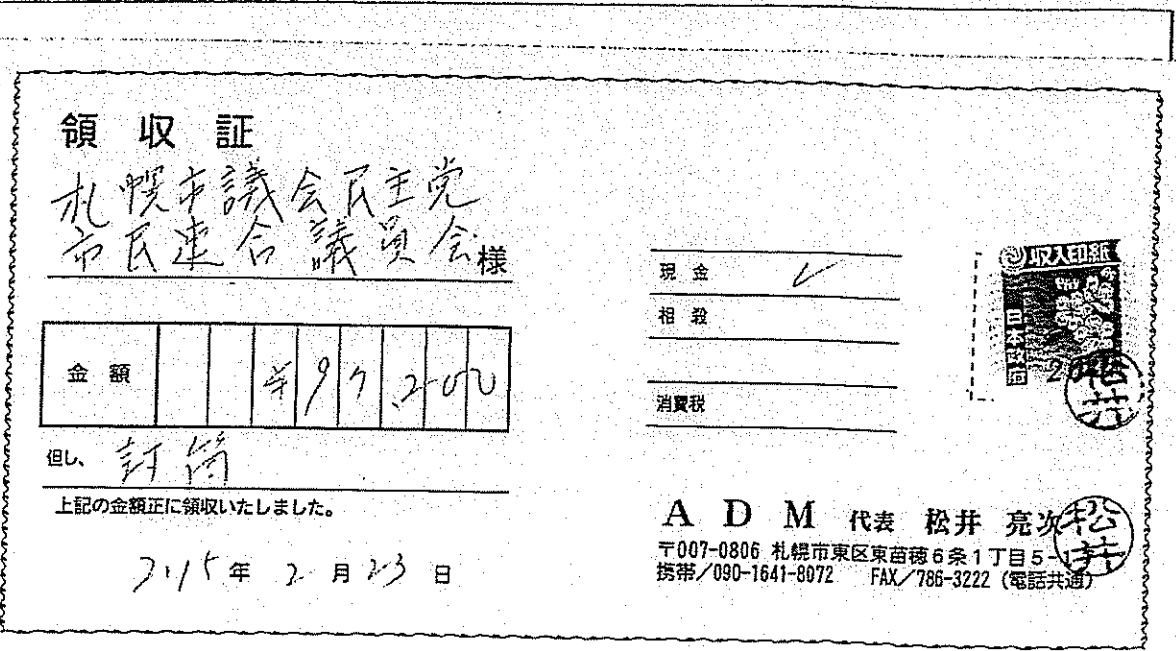 領収証
札幌市議会民主党
市民連合議員会様
金額 ¥97,200
但し、封筒
上記の金額正に領収いたしました。
2015年 2月23日
現金 ✓
相殺
消費税
収入印紙
日本政府
200
松井
ADM 代表 松井 亮次
〒007-0806 札幌市東区東苗穂6条1丁目5-1
携帯/090-1641-8072 FAX/786-3222 (電話共通)
松井